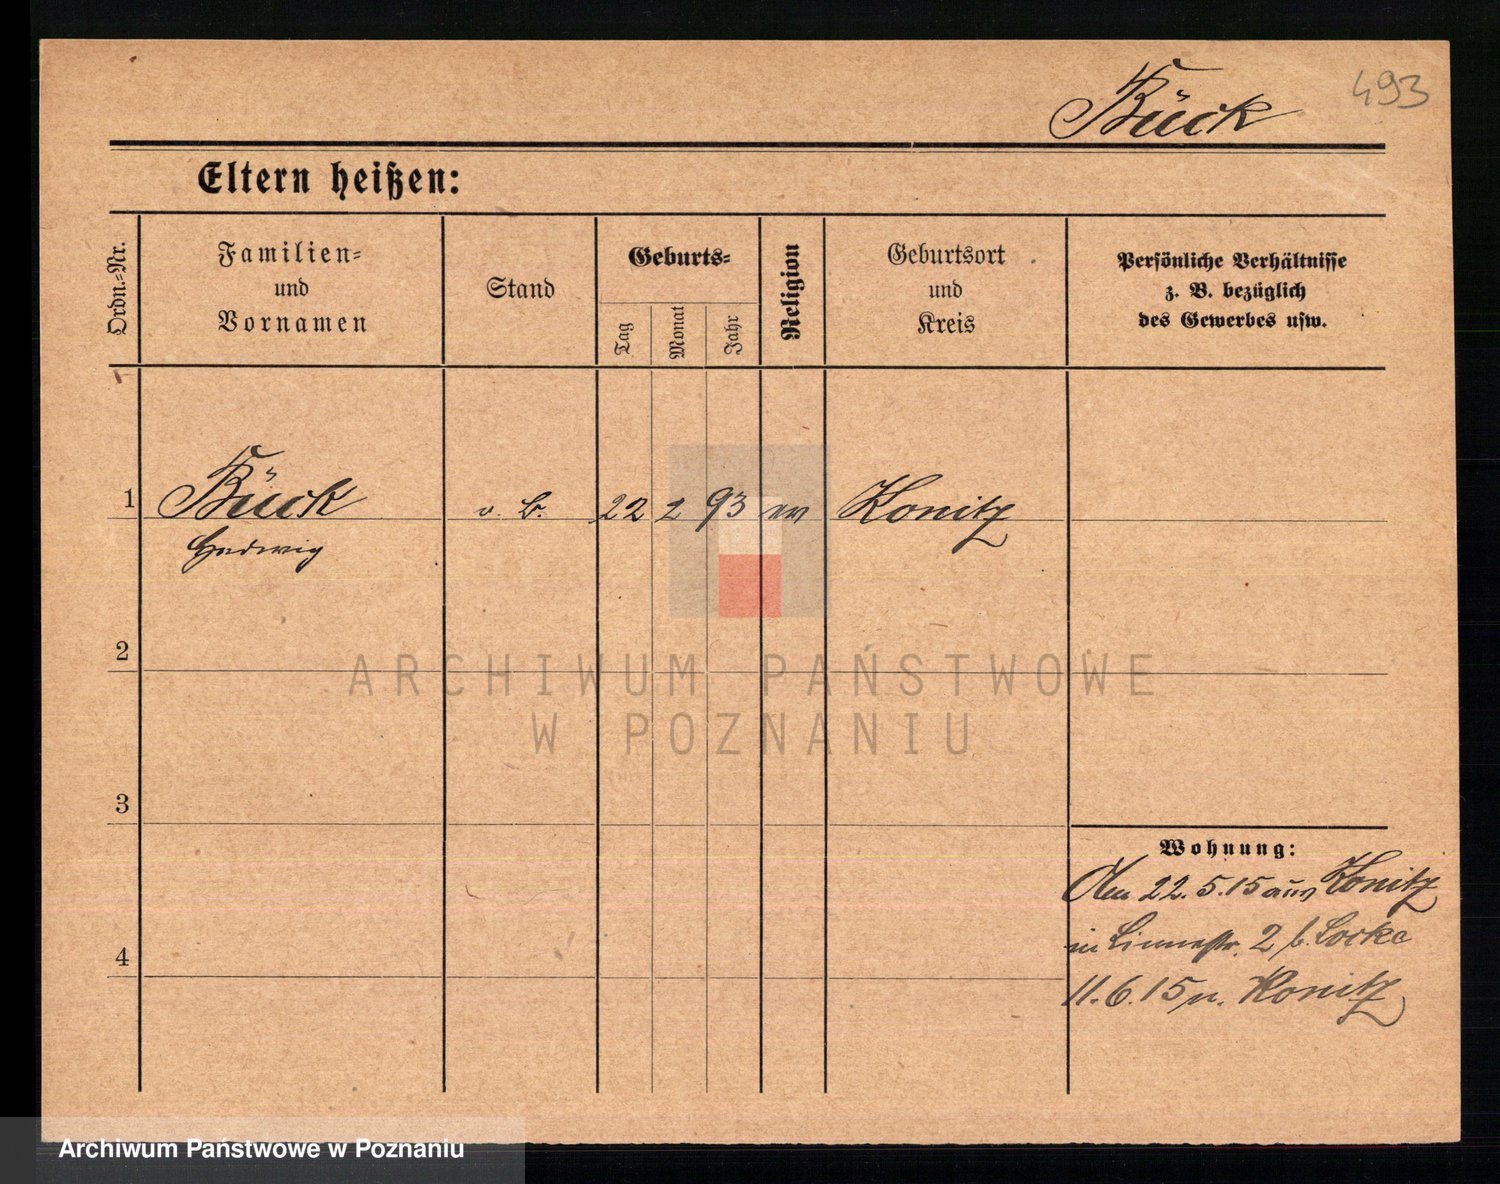 Bück 493
Eltern heißen:
Ordn.-Nr. Familien- und Vornamen Stand Geburts- Tag Monat Jahr Religion Geburtsort und Kreis Persönliche Verhältnisse z. B. bezüglich des Gewerbes usw.
1 Bück o. B. 22 2 93 Konitz
Hedwig
2
ARCHIWUM PAŃSTWOWE
W POZNANIU
3
Wohnung:
Am 22.5.15 aus Konitz
4 in Linnestr. 2 b. Locke
11.6.15 n. Konitz
Archiwum Państwowe w Poznaniu